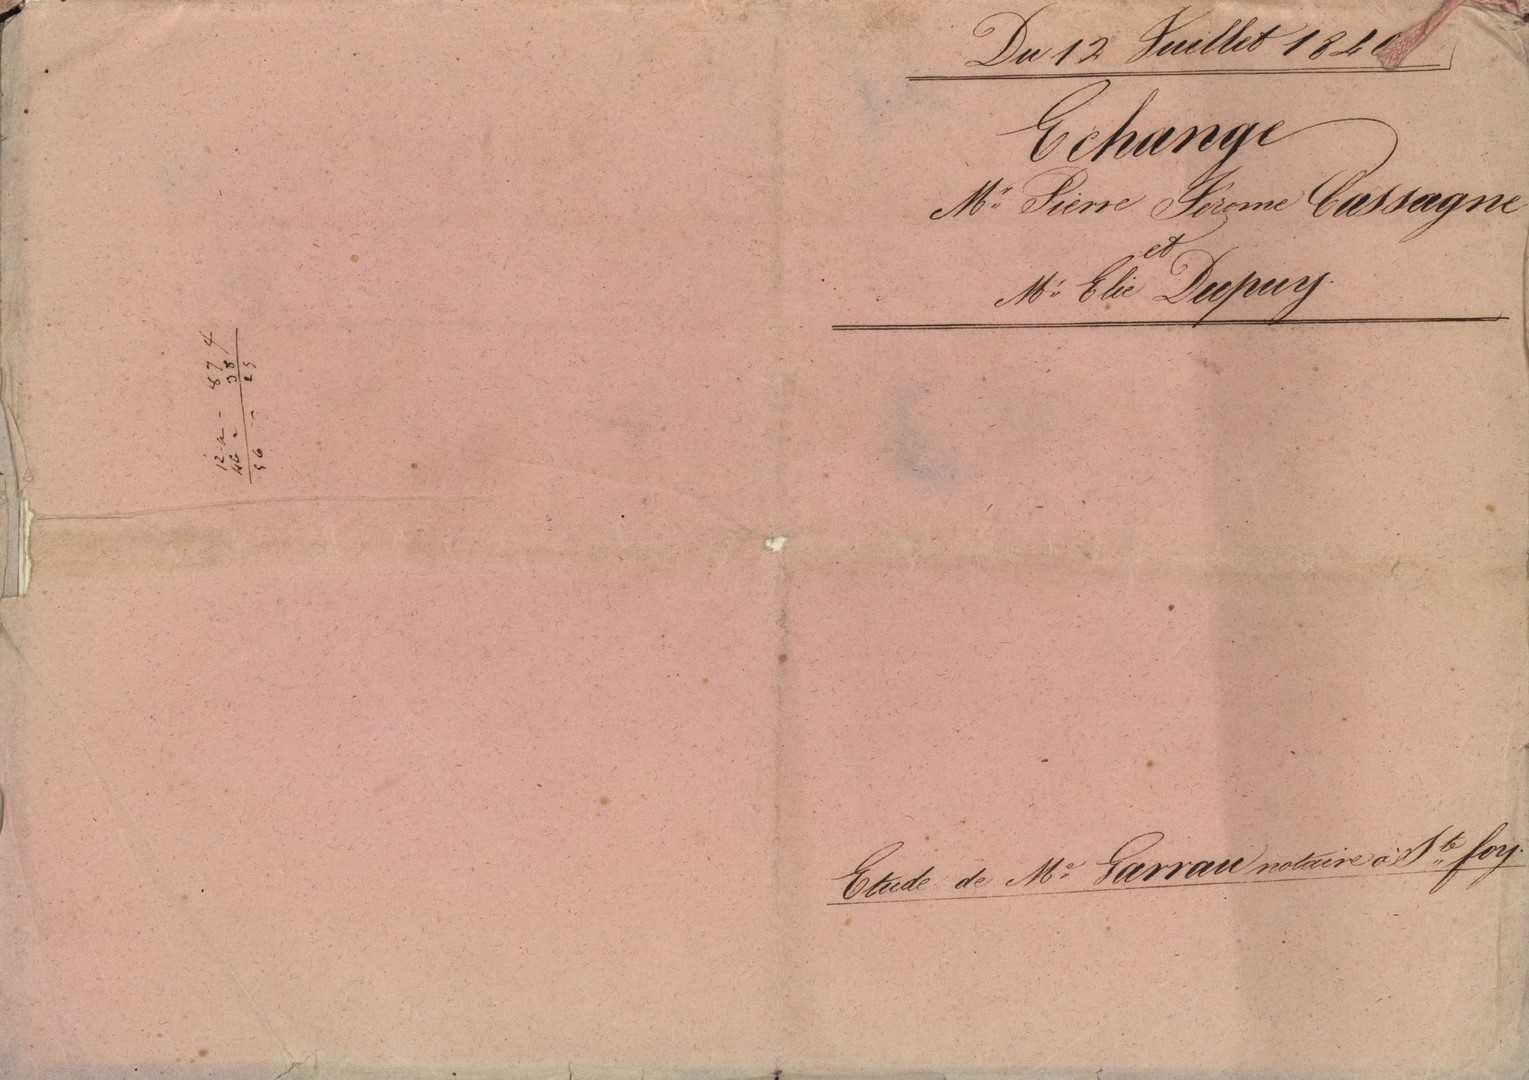 Du 12 Juillet 1840
Echange
Mr. Pierre Jérome Cassagne
et
Mr. Elie Dupuy.
Etude de Me. Garrau notaire à Ste. foy.